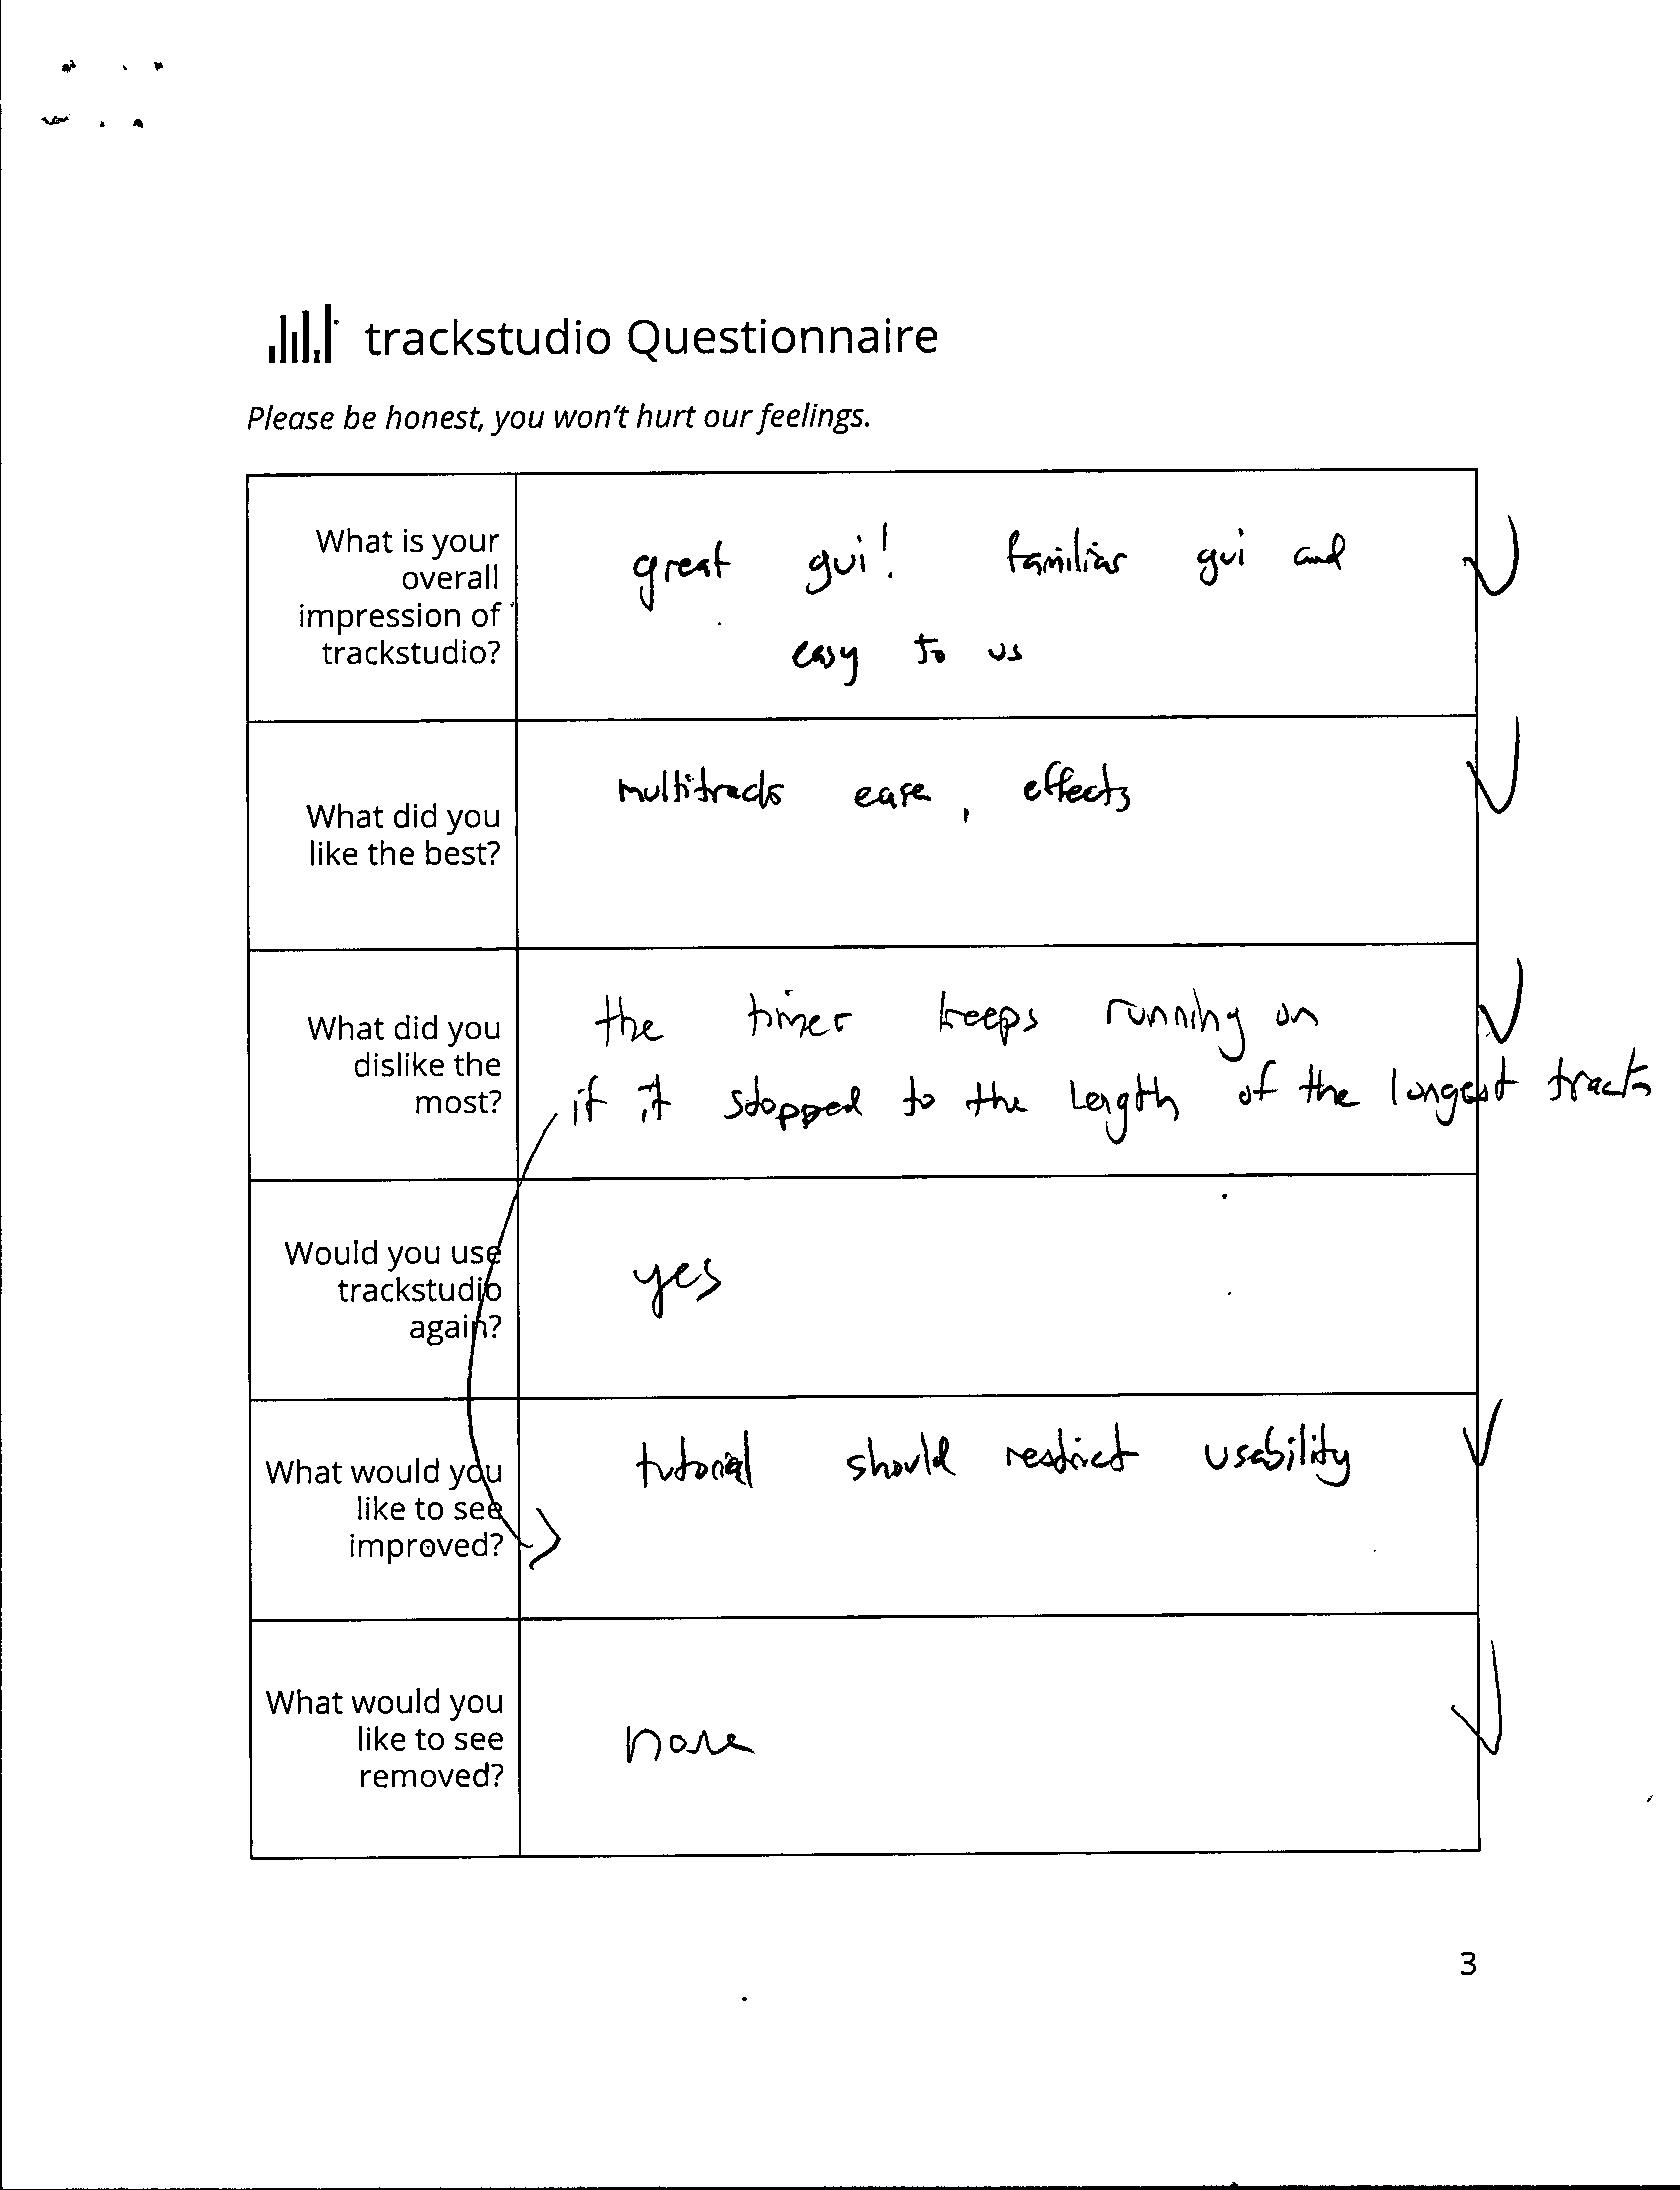 trackstudio Questionnaire
Please be honest, you won't hurt our feelings.
What is your
overall
impression of
trackstudio?
great gui! familiar gui and
easy to us
What did you
like the best?
multitracks ease, effects
What did you
dislike the
most?
the timer keeps running on
if it stopped to the length of the longest track
Would you use
trackstudio
again?
yes
What would you
like to see
improved?
tutorial should restrict usability
What would you
like to see
removed?
none
3